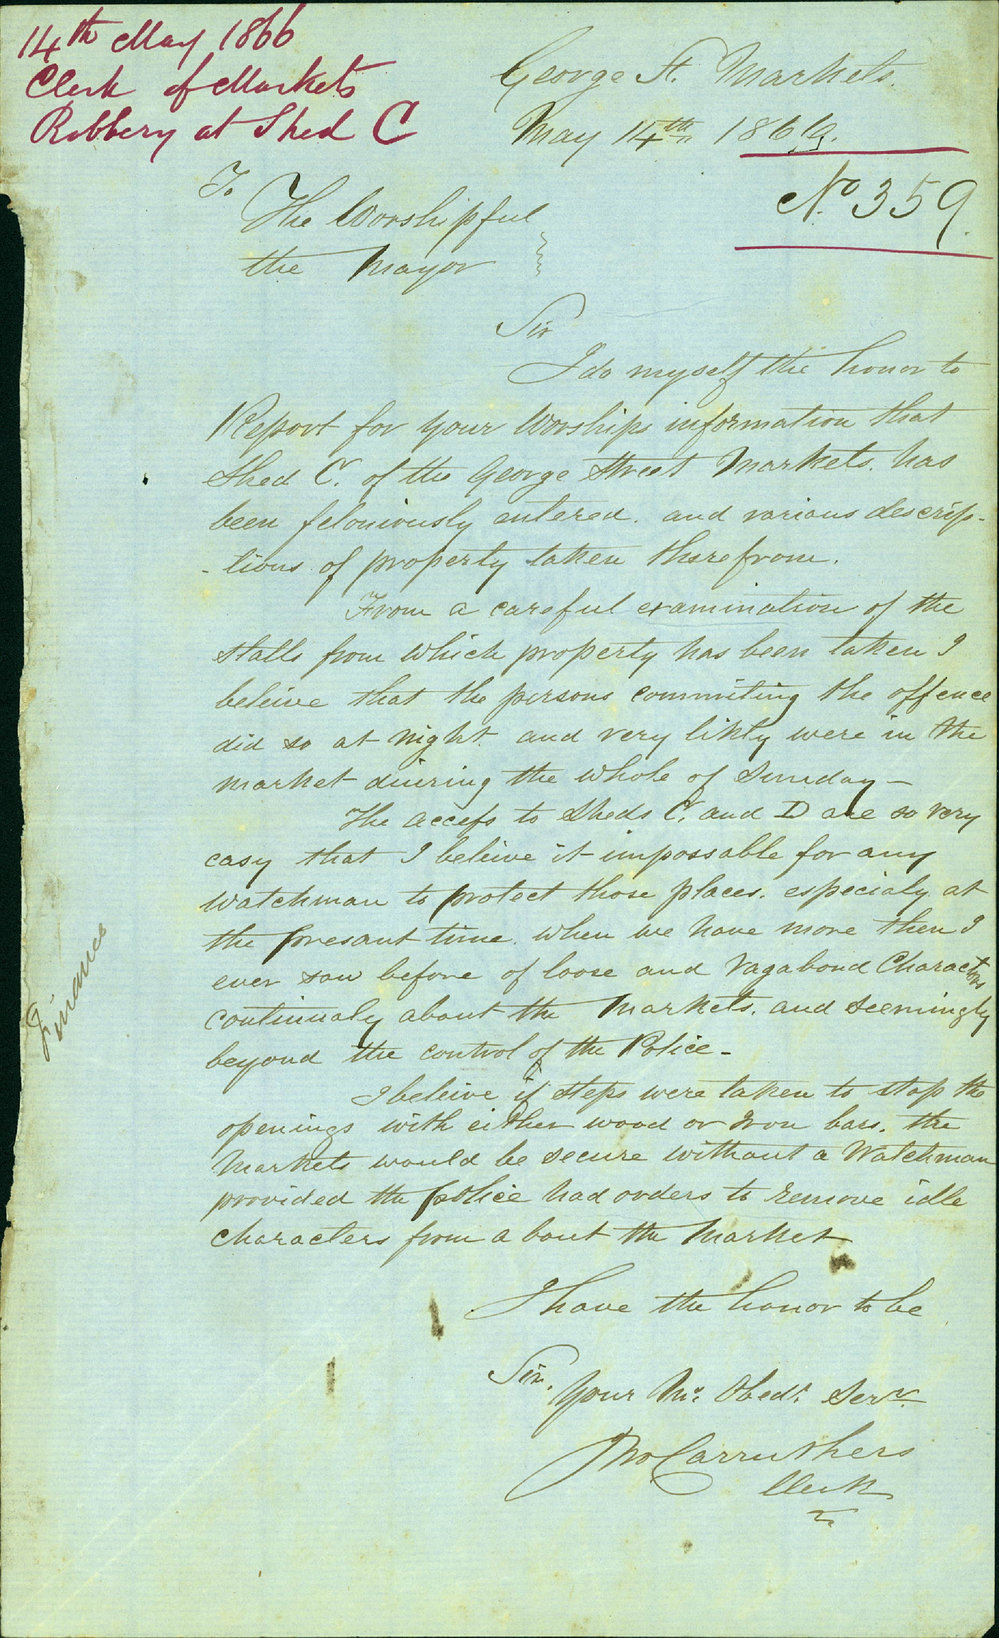 14th May 1866
Clerk of Markets
Robbery at Shed C
George St. Markets.
May 14th 1866.
No 359.
To
The Worshipful
the Mayor
Sir
I do myself the honor to
Report for your Worships information that
Shed C. of the George Street Markets. has
been feloniously entered. and various descrip-
-tions of property taken therefrom.
From a careful examination of the
stalls from which property has been taken I
beleive that the persons commiting the offence
did so at night and very likly were in the
market duering the whole of Sunday -
The access to Sheds C. and D are so very
easy that I beleive it impossable for any
watchman to protect those places. especialy at
the presant time. when we have more then I
ever saw before of loose and vagabond Characters
continualy about the Markets. and seemingly
beyond the control of the Police -
I beleive if steps were taken to stop the
openings with either wood or Iron bars. the
Markets would be secure without a Watchman
provided the police had orders to remove idle
characters from about the Market
I have the honor to be
Sir.
Your Mo. Obedt. Servt.
Jno Carruthers
Clerk
Finance